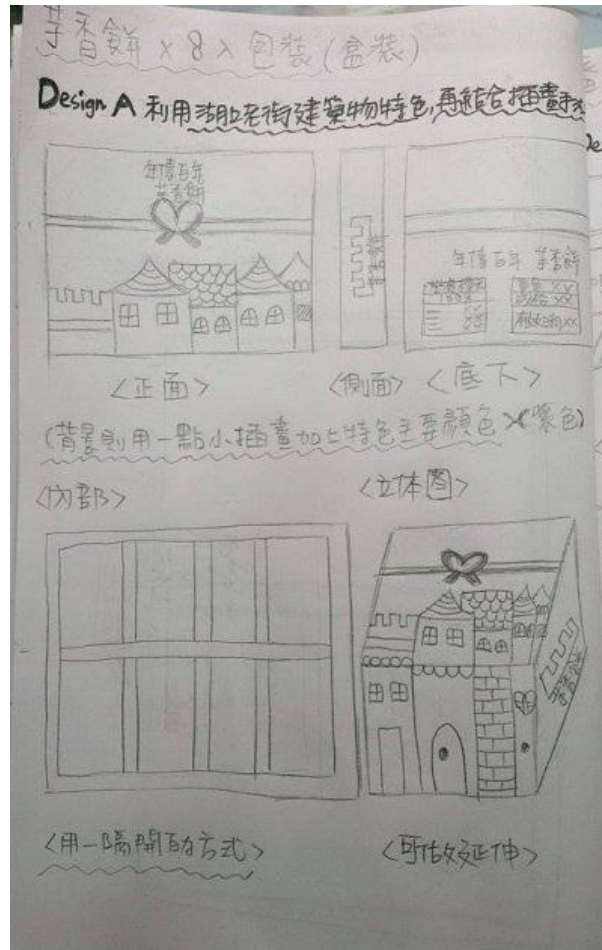 芋香餅 x 8入 包裝(盒裝)
Design A 利用湖口老街建築物特色,再結合插畫手
年傳百年
芋香餅
芋香餅
年傳百年 芋香餅
<正面>
<側面>
<底下>
(背景則用一點小插畫加上特色主要顏色 紫色)
<內部>
<立体圖>
芋香餅
<用一隔開的方式>
<可做延伸>